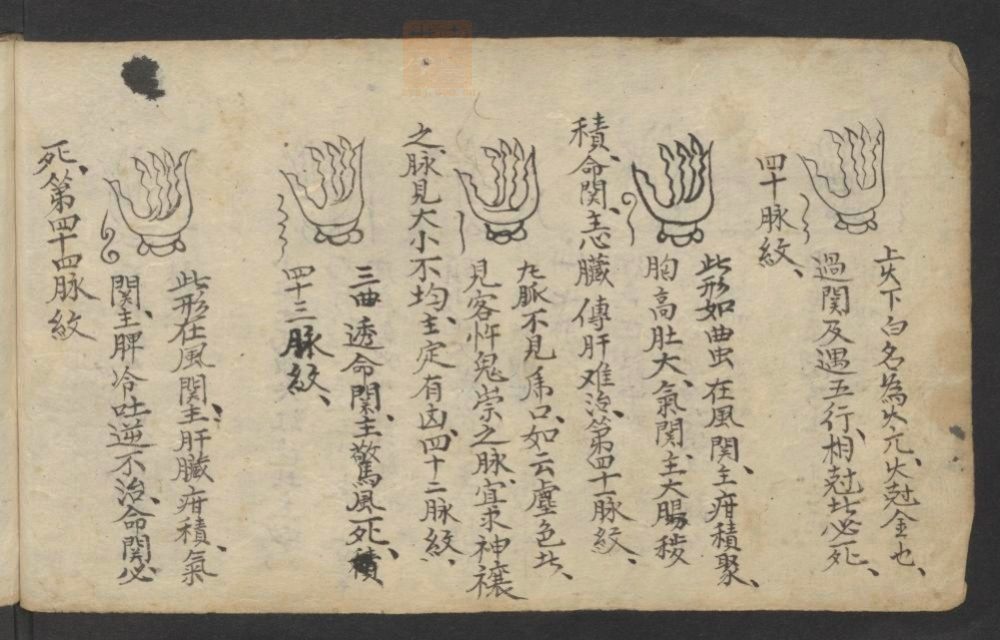 上火下白名為火亢、火尅金也、
過関及遇五行、相尅比必死、
四十脉紋、
此形如曲虫在風関、主疳積聚、
胸高肚大、氣関、主大腸秽
積、命関、主心臓傳肝难治、第四十一脉紋、
凡脈不見虎口、如云塵色比、
見客忤鬼祟之脉、宜求神禳
之、脉見大小不均、主定有凶、四十二脉紋、
三曲透命関、主驚風死、積
四十三脉紋、
此形在風関、主肝臓疳積、氣
関、主脾冷吐逆不治、命関必
死、第四十四脉紋